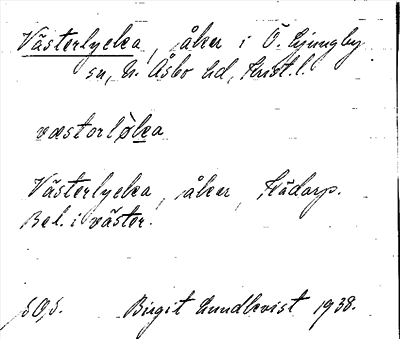 Västerlycka, åker i Ö. Ljungby
sn, N. Åsbo hd, Krist. l.
væstorlo̦̍ka
Västerlycka, åker, Hådarp.
Bel. i väster.
Birgit Lundkvist 1938.